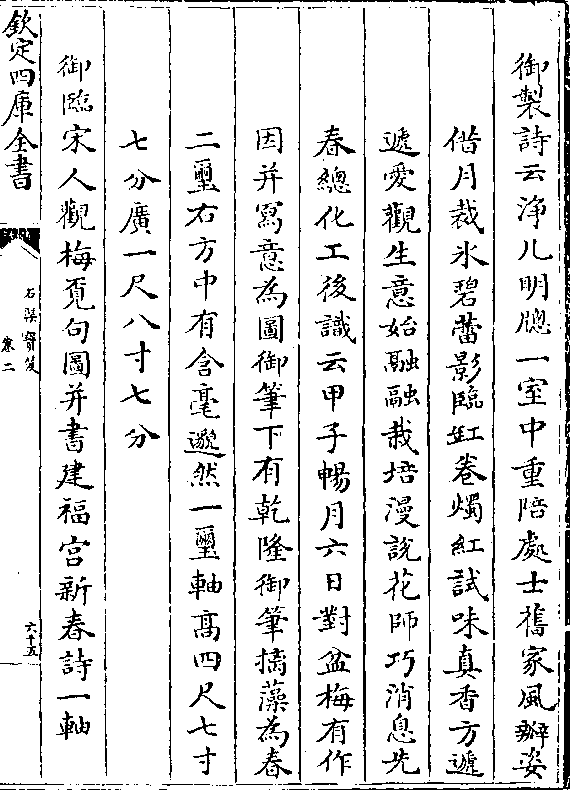 御製詩云淨几明牕一室中重陪處士舊家風瓣姿
借月裁氷碧蕾影臨缸卷燭紅試味真香方遞
遞愛觀生意始融融栽培漫說花師巧消息先
春總化工後識云甲子暢月六日對盆梅有作
因并寫意為圖御筆下有乾隆御筆摛藻為春
二璽右方中有含毫邈然一璽軸髙四尺七寸
七分廣一尺八寸七分
御臨宋人觀梅覓句圖并書建福宮新春詩一軸
欽定四庫全書
卷二
六十五